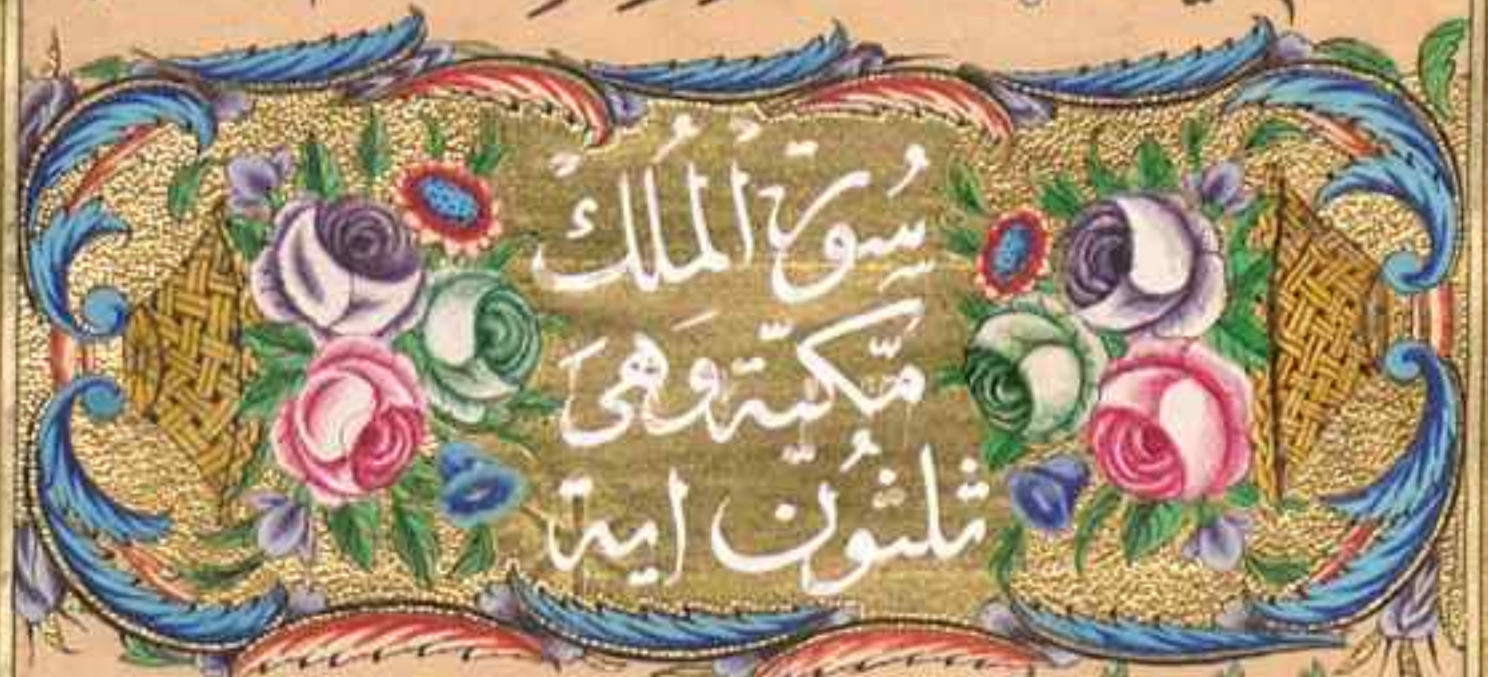 سُورة المُلْك
مّكيّة وَهىَ
ثلثُون اية